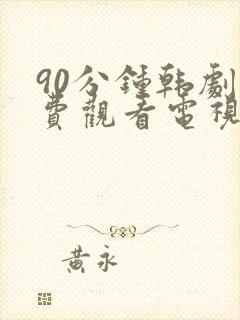 90分鍾韩劇
費觀看電視
黃永